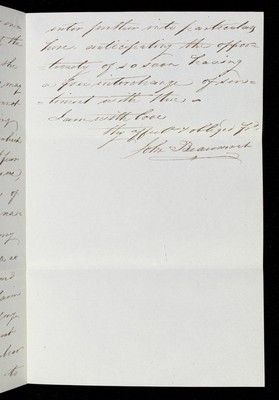 enter further into particulars
here anticipating the oppor-
tunity of so soon having
a free interchange of sen-
timent with thee
I am with love
Thy affect & obliged Frd
John Beaumont
the
the
may
of
as
to